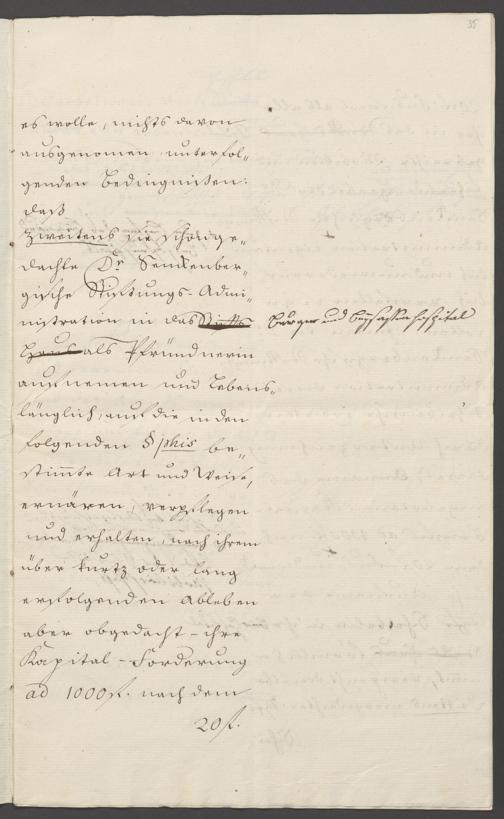 35
es wolle, nichts davon
ausgenomen unterfol„
genden Bedingnissen:
daß
Zweitens die schonge„
dachte Dr. Senckenber„
gische Stiftungs-Admi„
nistration in das Stifts Bürger und Beysassenhospital
Haus als Pfründnerin
aufnemen und Lebens„
länglich, auf die in den
folgenden §phis be„
stimmte Art und Weise,
ernären, verpflegen
und erhalten, nach ihrem
über kurtz oder lang
erfolgenden Ableben
aber obgedacht-ihre
Kapital-Forderung
ad 1000 f. nach dem
20 f.